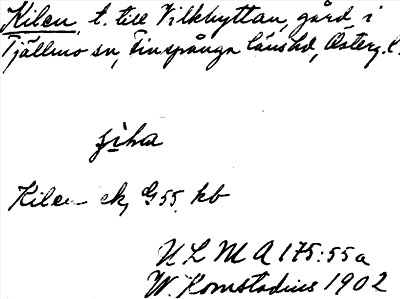 Kilen, t. till Vilkhyttan, gård i
Tjällmo sn, Finspånga länshd, Österg. l.
Kilen ek, G 55 kb
ULMA 175:55a
W. Komstadius 1902